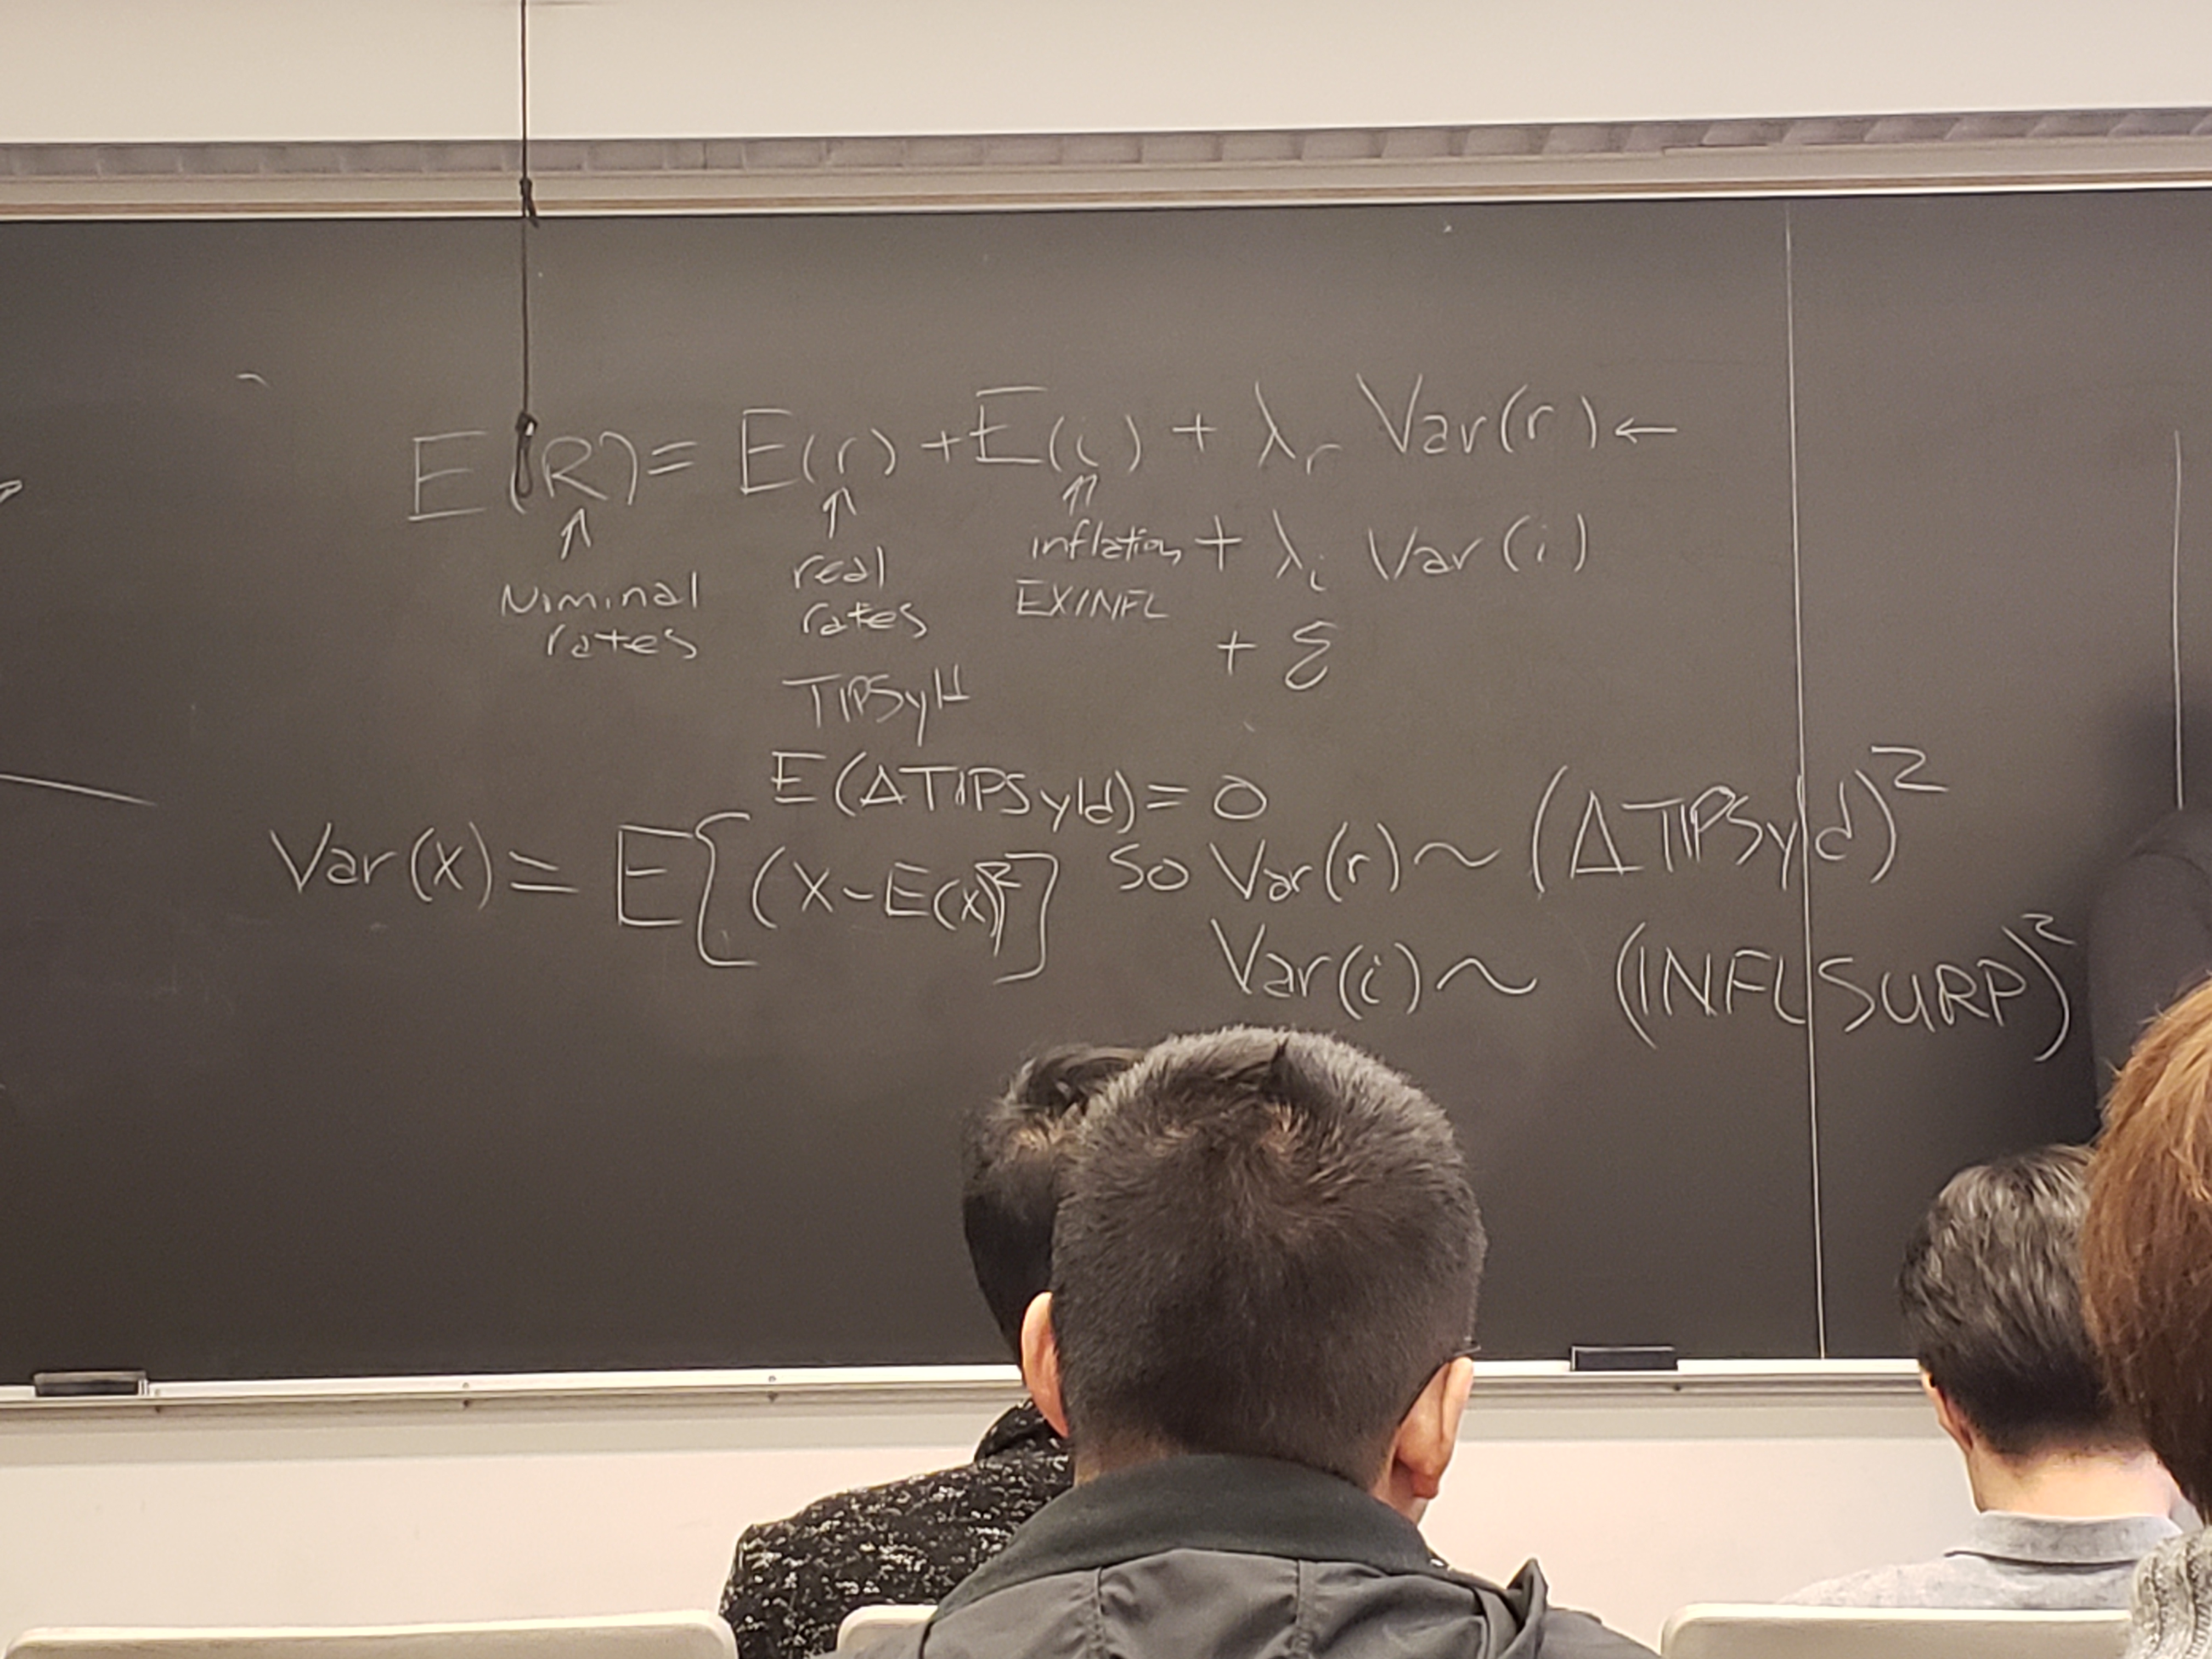 E(R) = E(r) + E(i) + λr Var(r) ←
↑ ↑ ↑
Nominal rates
real rates
TIPSyld
inflation
EXINFL
+ λi Var(i)
+ ε
E(ΔTIPSyld) = 0
Var(x) = E[(x - E(x))²] so Var(r) ~ (ΔTIPSyld)²
Var(i) ~ (INFLSURP)²